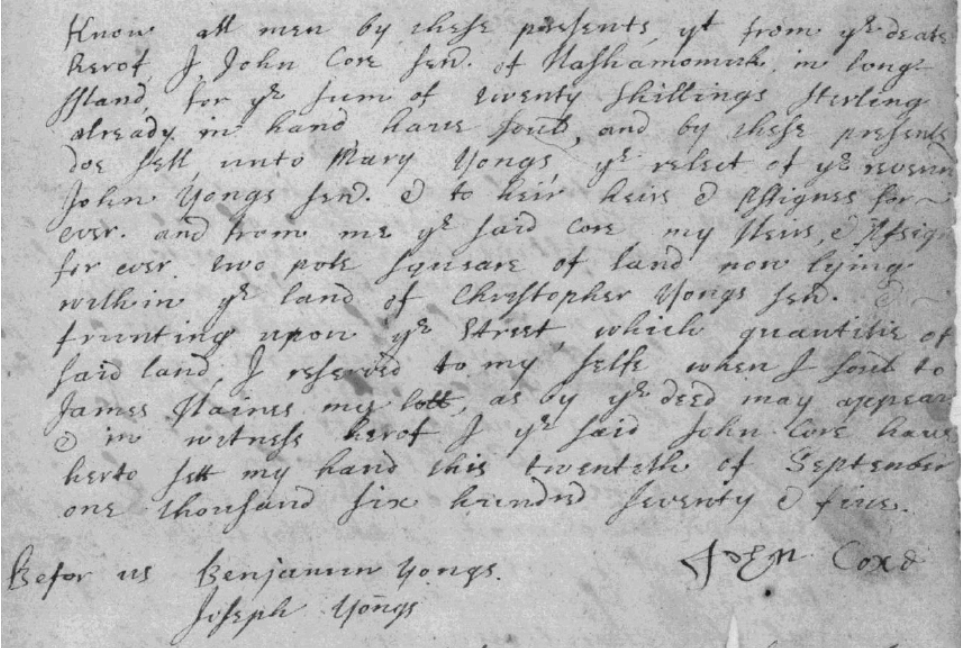 Know all men by these presents, yt from ye deate
herof, I John Core senr. of Hashamomuk in long
Island, for ye sum of twenty shillings sterling
already in hand haue sould, and by these presents
doe sell unto Mary Yongs ye relect of ye reverend
John Yongs senr. & to heir heirs & Assignes for
ever. and from me ye said Core my Heirs, & Assigns
for ever. two pole squeare of land now lying
within ye land of Christopher Yongs senr. &
frunting upon ye Street, which quantitie of
said land, I reserved to my selfe when I sould to
James Haines my lott, as by ye deed may appear
& in witness herof I ye said John Core haue
herto sett my hand this twenteth of September
one thousand six hundred seventy & five.
John Core
Befor us Benjamin Yongs.
Joseph Yongs